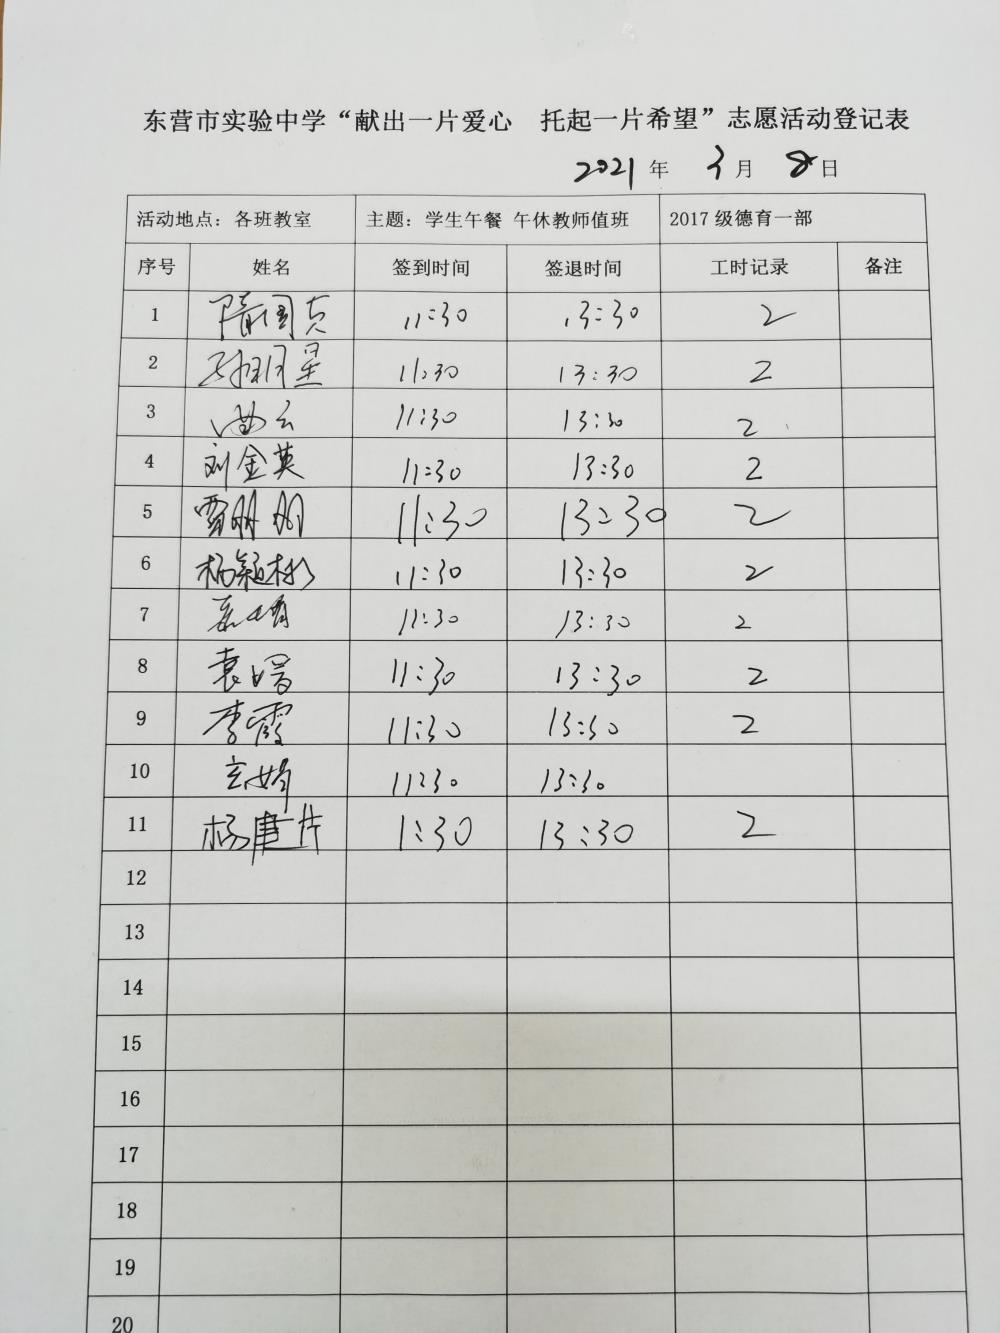 东营市实验中学“献出一片爱心 托起一片希望”志愿活动登记表
2021 年 3 月 8 日
活动地点：各班教室 主题：学生午餐 午休教师值班 2017 级德育一部
序号 姓名 签到时间 签退时间 工时记录 备注
1 隋国贞 11:30 13:30 2
2 孙明星 11:30 13:30 2
3 11:30 13:30 2
4 刘金英 11:30 13:30 2
5 贾朋朋 11:30 13:30 2
6 杨颖彬 11:30 13:30 2
7 11:30 13:30 2
8 袁 11:30 13:30 2
9 李霞 11:30 13:30 2
10 11:30 13:30
11 杨 1:30 13:30 2
12
13
14
15
16
17
18
19
20